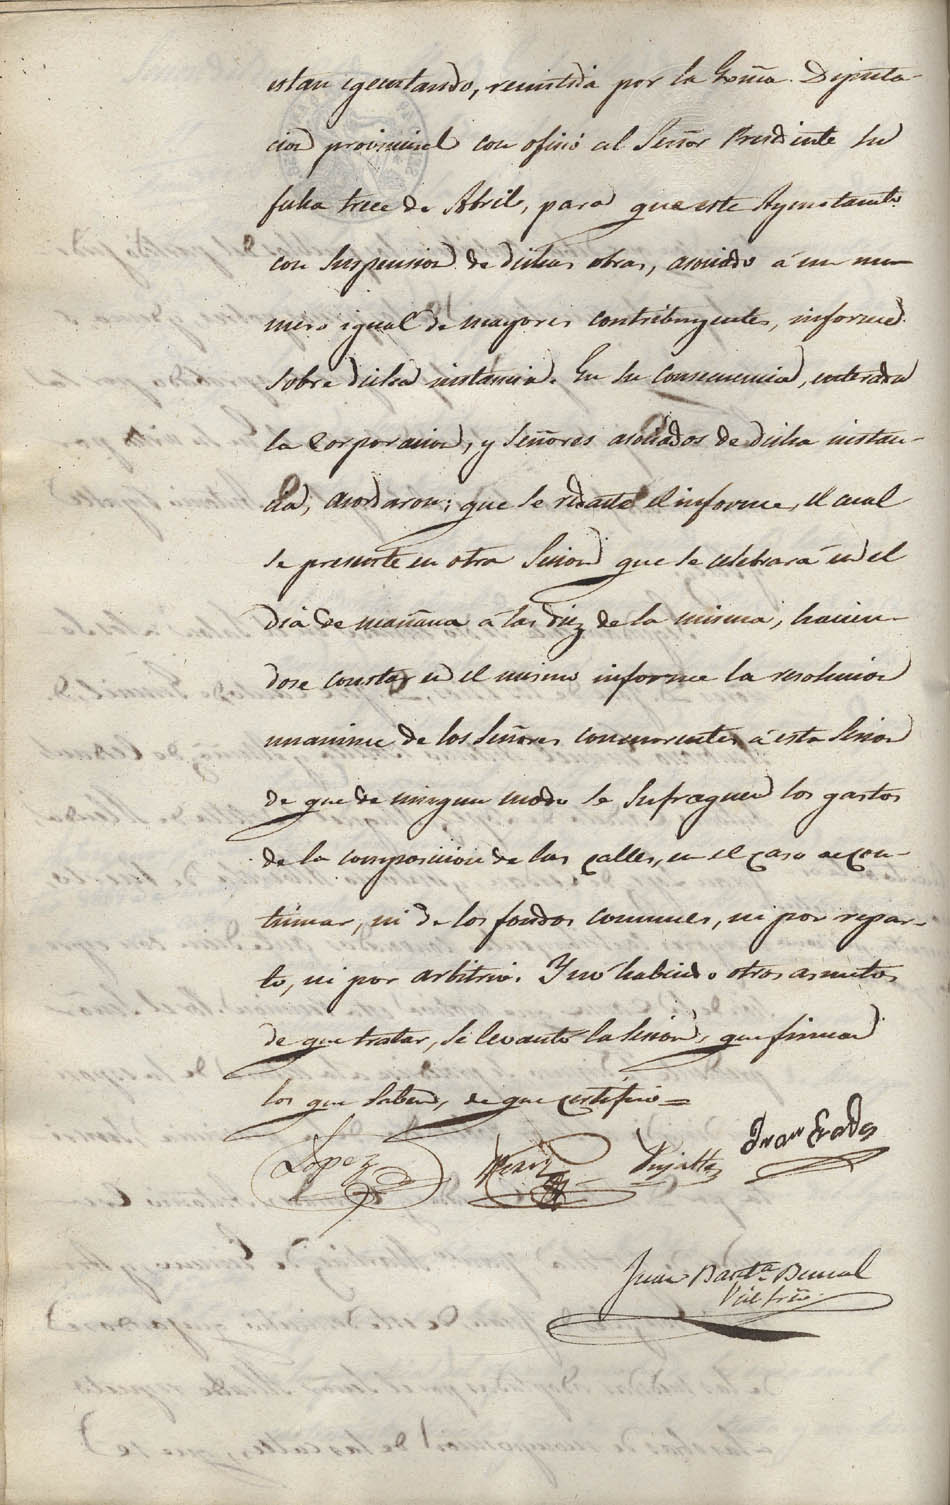 estan egecutando, remitida por la Exma. Diputa-
cion provincial con oficio al Señor Presidente su
fecha trece de Abril, para que este Ayuntamto.
con suspension de dichas obras, asociado á un nu-
mero igual de mayores contribuyentes, informe
sobre dicha instancia. En su consecuencia, enterada
la Corporacion, y Señores asociados de dicha instan-
cia, acordaron; que se redacte el informe, el cual
se presente en otra sesion que se celebrará en el
dia de mañana á las diez de la misma, hacien-
dose constar en el mismo informe la resolucion
unanime de los Señores concurrentes á esta sesion
de que de ningun modo se sufraguen los gastos
de la composicion de las calles, en el caso de con-
tinuar, ni de los fondos comunes, ni por repar-
to, ni por arbitrio. Y no habiendo otros asuntos
de que tratar, se levantó la sesion, que firman
los que saben, de que certifico =
Lopez
Juan Prados
Juan Bauta. Bernal